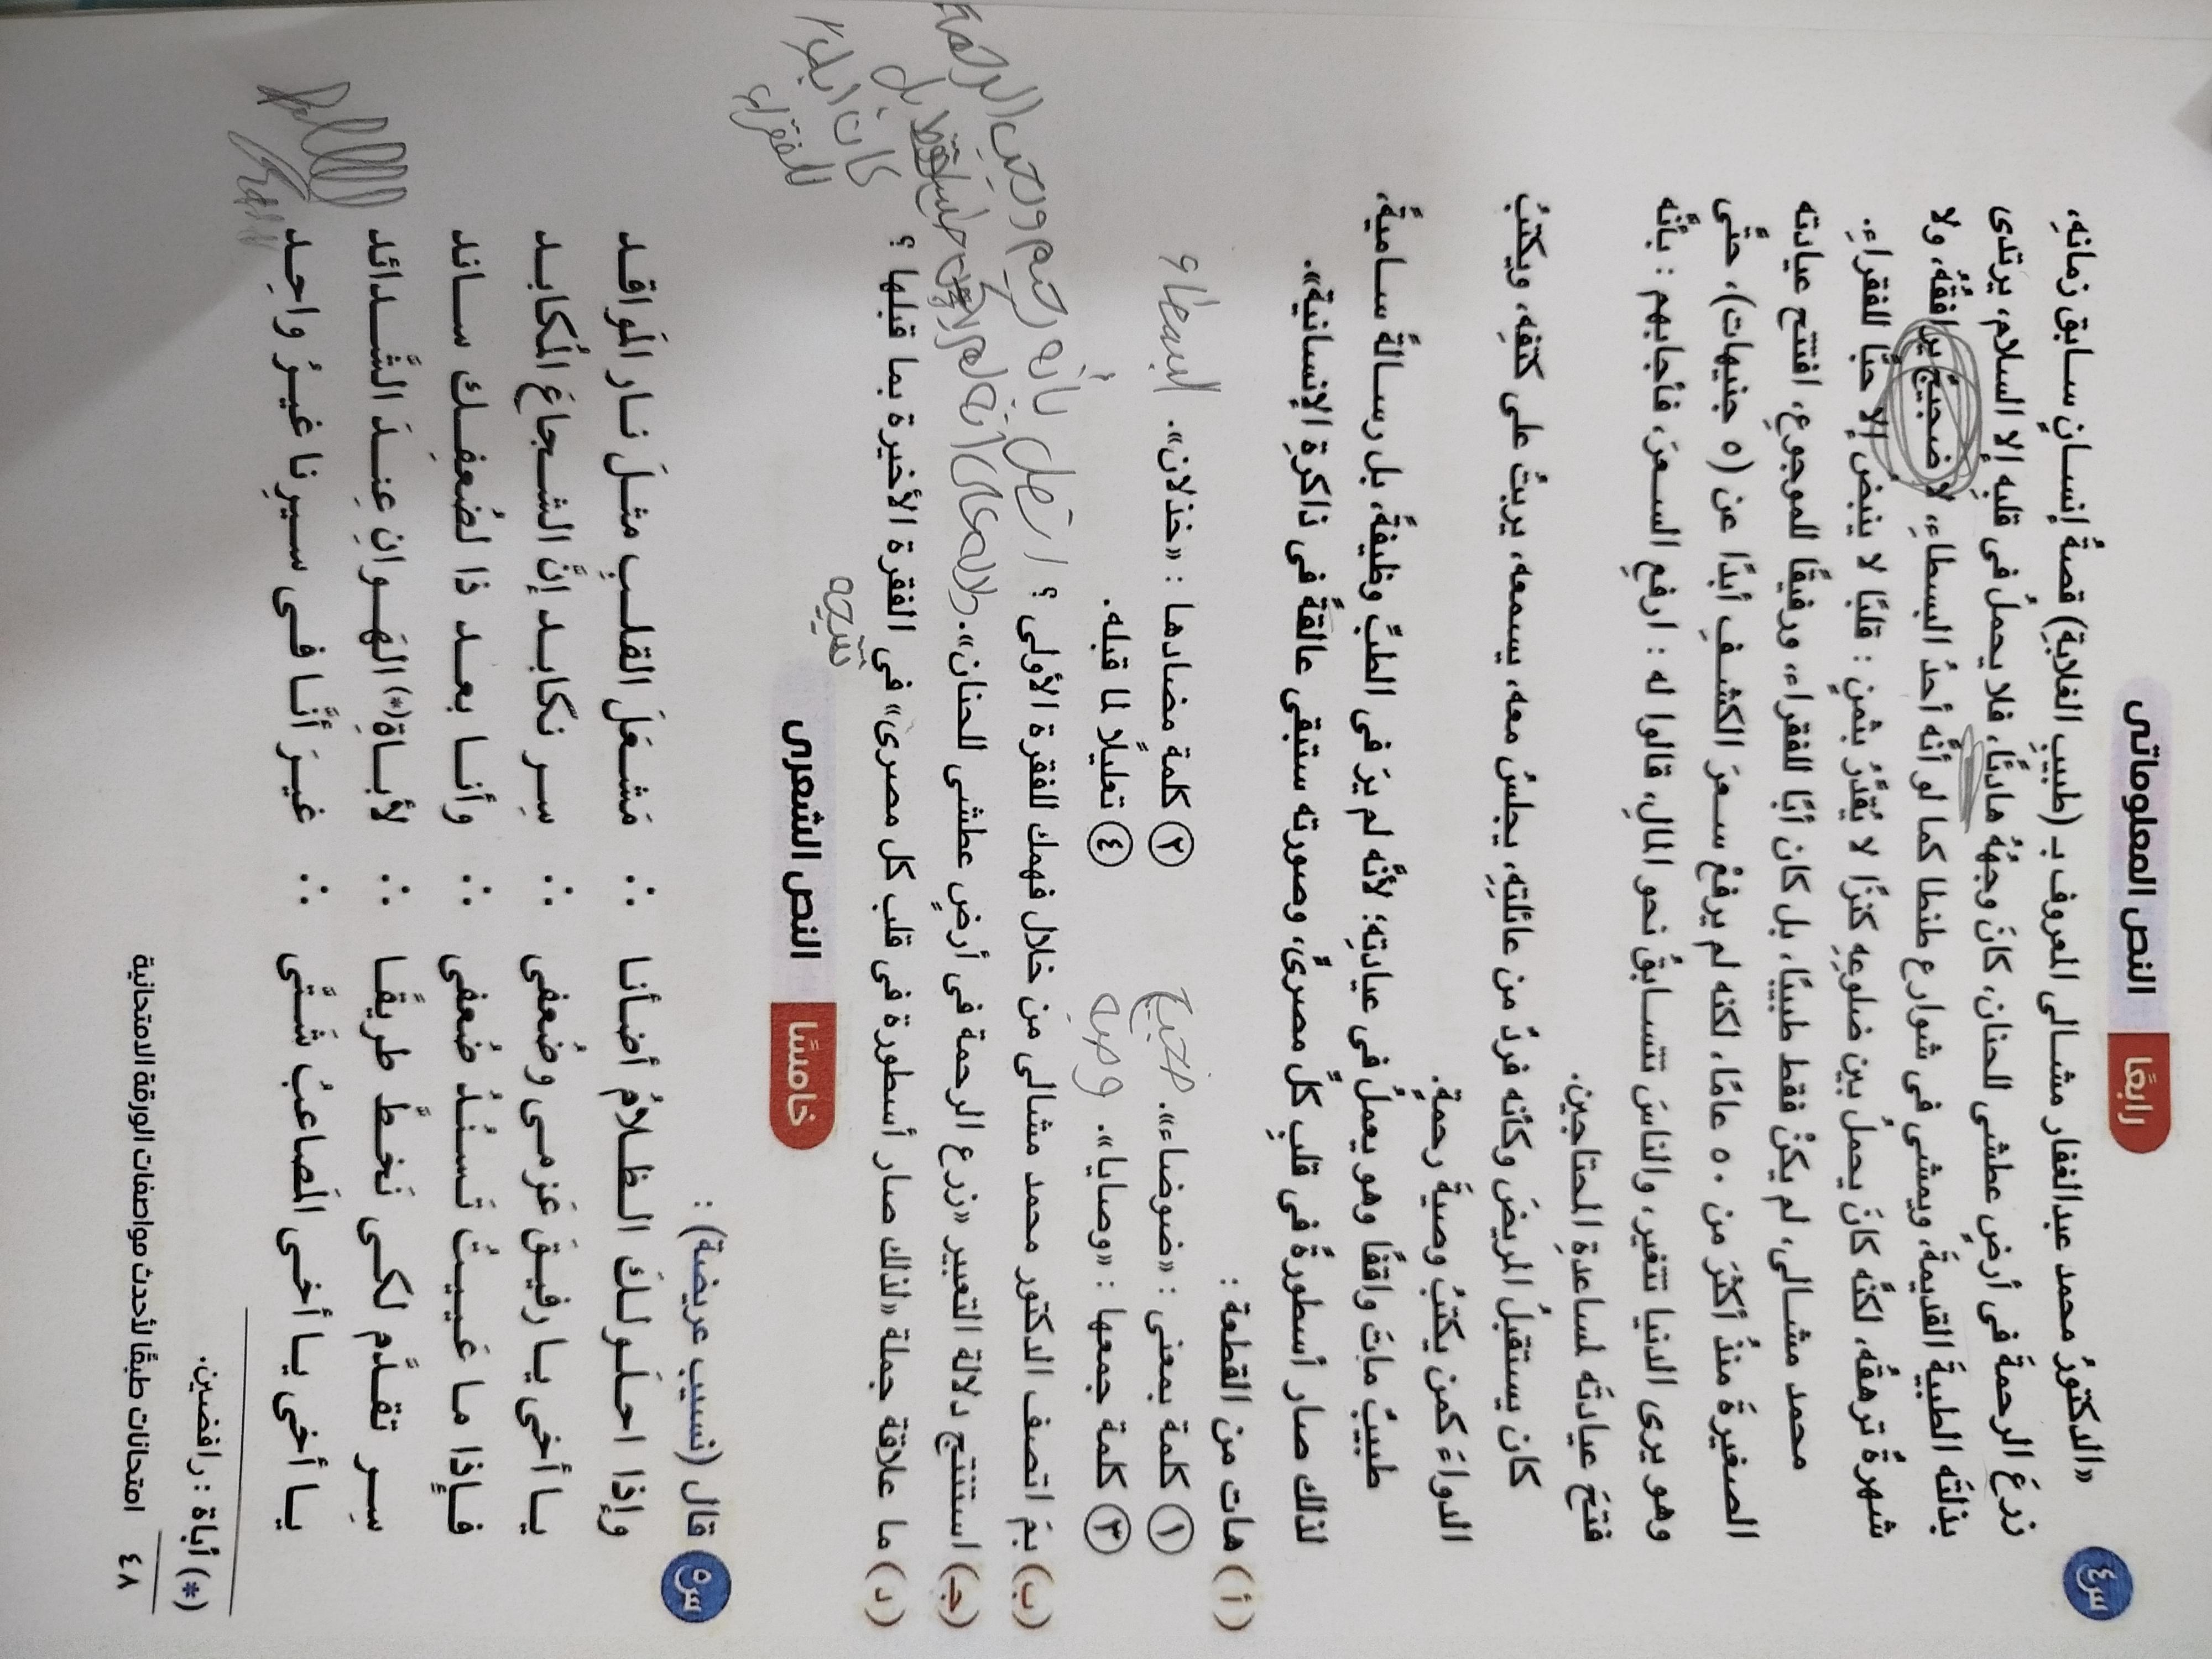 رابعًا النص المعلوماتى
س٤ «الدكتورُ محمد عبدالغفار مشالى المعروف بـ (طبيبِ الغلابةِ) قصةُ إنسانٍ سابق زمانهِ،
زرعَ الرحمةَ فى أرضٍ عطشى للحنان، كانَ وجهُهُ هادئًا، فلا يحملُ فى قلبهِ إلا السلام، يرتدى
بذلتَه الطبيةَ القديمةَ، ويمشى فى شوارع طنطا كما لو أنَّه أحدُ البسطاءِ، لا ضجيجُ يرافقُهُ، ولا
شهرةٌ ترهقُه، لكنَّه كانَ يحملُ بين ضلوعِهِ كنزًا لا يُقدَّرُ بثمنٍ : قلبًا لا ينبضُ إلا حبًّا للفقراءِ.
محمد مشالى، لم يكنْ فقط طبيبًا، بل كان أبًا للفقراء، ورفيقًا للموجوعِ، افتتح عيادته
الصغيرةَ منذُ أكثرَ من ٥٠ عامًا، لكنه لم يرفعْ سعرَ الكشفِ أبدًا عن (٥ جنيهات)، حتَّى
وهو يرى الدنيا تتغير، والناسَ تتسابقُ نحو المالِ، قالوا له : ارفعِ السعرَ، فأجابهم : بأنَّه
فتحَ عيادتَه لمساعدةِ المحتاجين.
كان يستقبلُ المريضَ وكأنه فردٌ من عائلتِهِ، يجلسُ معه، يسمعه، يربتُ على كتفهِ، ويكتبُ
الدواءَ كمن يكتبُ وصيةَ رحمةٍ.
طبيبٌ ماتَ واقفًا وهو يعملُ فى عيادتهِ؛ لأنَّه لم يرَ فى الطبِّ وظيفةً، بل رسالةً ساميةً،
لذلك صار أسطورةً فى قلبِ كلِّ مصرىٍّ، وصورته ستبقى عالقةً فى ذاكرةِ الإنسانية».
(أ) هات من القطعة :
١ كلمة بمعنى : «ضوضاء». ضجيج ٢ كلمة مضادها : «خذلان».
٣ كلمة جمعها : «وصايا». وصية ٤ تعليلًا لما قبله.
(ب) بمَ اتصف الدكتور محمد مشالى من خلال فهمك للفقرة الأولى ؟ اتصل بأنه رحيم وحب الرحمة
(جـ) استنتج دلالة التعبير «زرع الرحمة فى أرضٍ عطشى للحنان». دلاله على انه لم يكن طبيب فقط بل
كان ابا
للفقراء
(د) ما علاقة جملة «لذلك صار أسطورة فى قلب كل مصرى» فى الفقرة الأخيرة بما قبلها ؟
نتيجه
خامسًا النص الشعرى
س٥ قال (نسيب عريضة) :
وإذا احلَولكَ الظلامُ أضأنا ∴ مَشعَلَ القلبِ مثلَ نار المَواقد
يا أخى يا رفيقَ عَزمى وضُعفى ∴ سِر نكابد إنَّ الشجاعَ المُكابد
فإذا ما عَييتُ تَسنُدُ ضُعفى ∴ وأنا بعد ذا لضُعفِك ساند
سِر تقدَّم لكى نَخطَّ طريقًا ∴ لأباة(*) الهَوانِ عِندَ الشَّدائد
يا أخى يا أخى المَصاعبُ شَتَّى ∴ غيرَ أنَّا فى سيرِنا غيرُ واحِد
(*) أباة : رافضين.
٤٨ امتحانات طبقًا لأحدث مواصفات الورقة الامتحانية